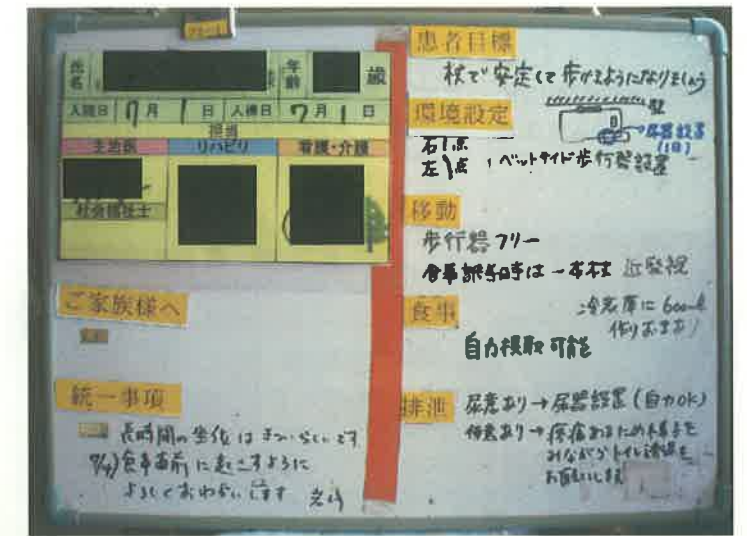 氏名
様
年齢
歳
入院日 7月1日 入棟日 7月1日
担当
主治医 リハビリ 看護・介護
社会福祉士
ご家族様へ
統一事項
長時間の坐位はまだつらいです
食事直前に起こすように
よろしくおねがいします
患者目標
杖で安定して歩けるようになりましょう
環境設定
壁
尿器設置
右1点
左1点、ベットサイド歩行器設置
移動
歩行器フリー
食事訓練時は一本杖 近監視
食事
冷蔵庫に600ml
作りおきあり
自力摂取可能
排泄
尿意あり→尿器設置(自力OK)
便意あり→疼痛あるため様子を
みながらトイレ誘導を
お願いします